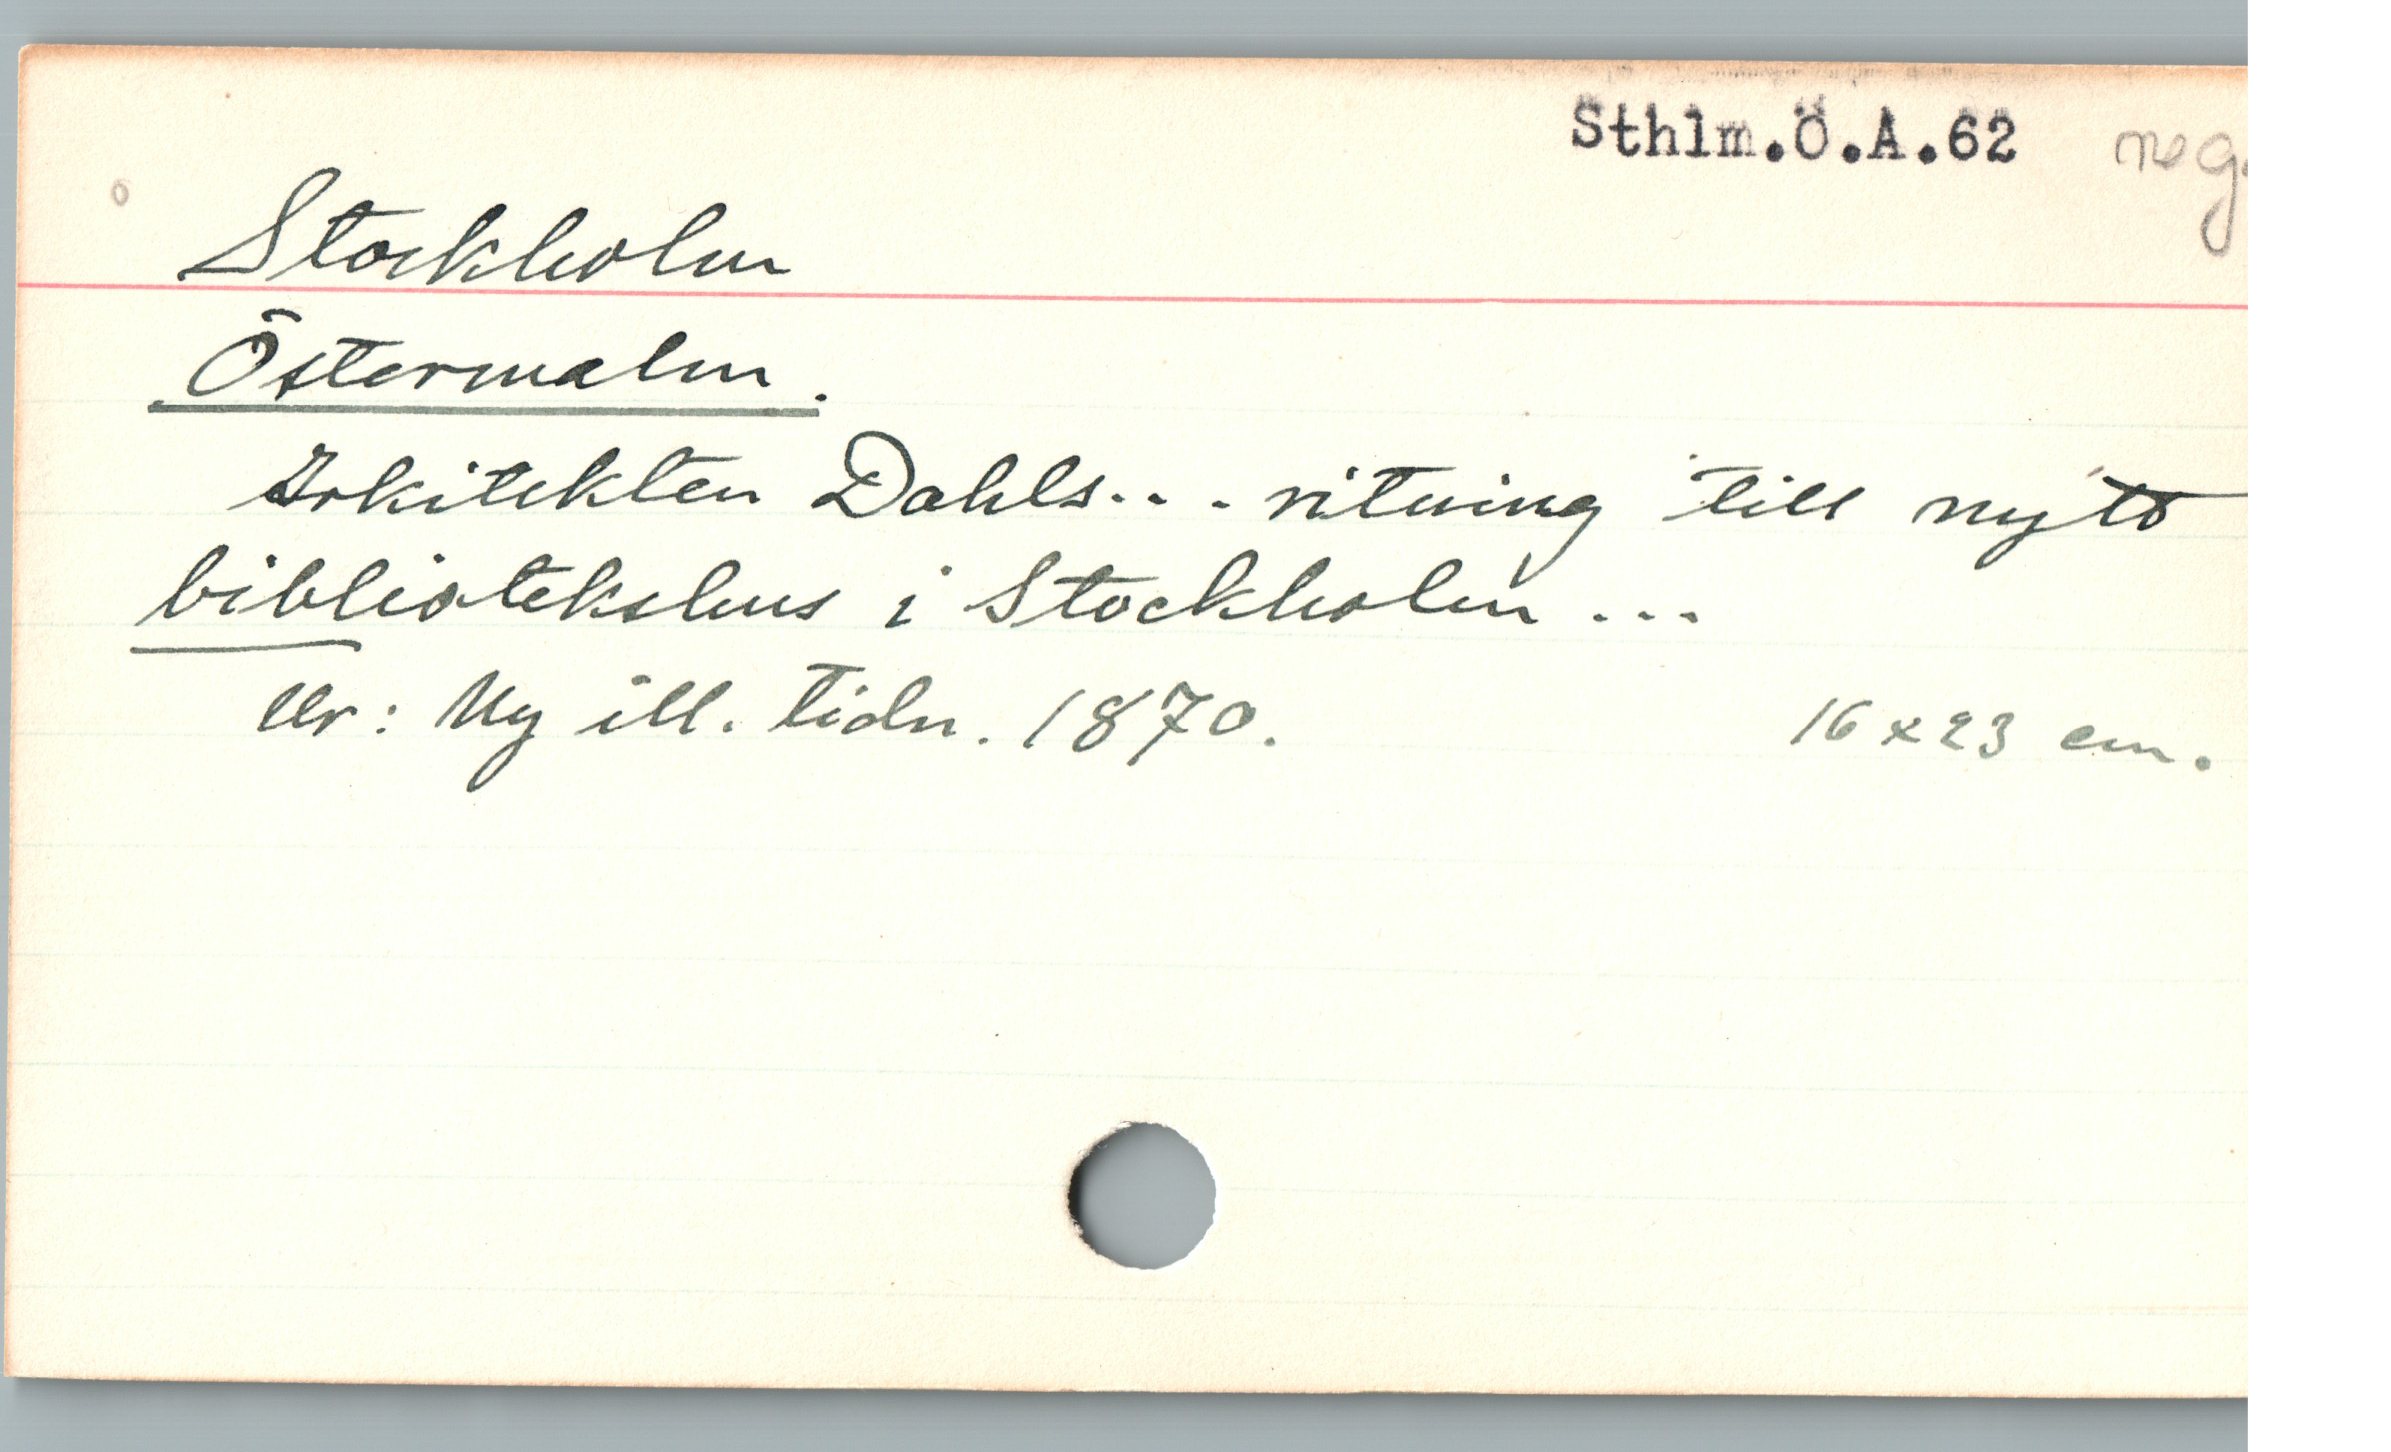 Sthlm.Ö.A.62 neg.
Stockholm
Östermalm.
Arkitekten Dahls... ritning till nytt
bibliotekshus i Stockholm ...
Ur: Ny ill. tidn. 1870. 16 x 23 cm.